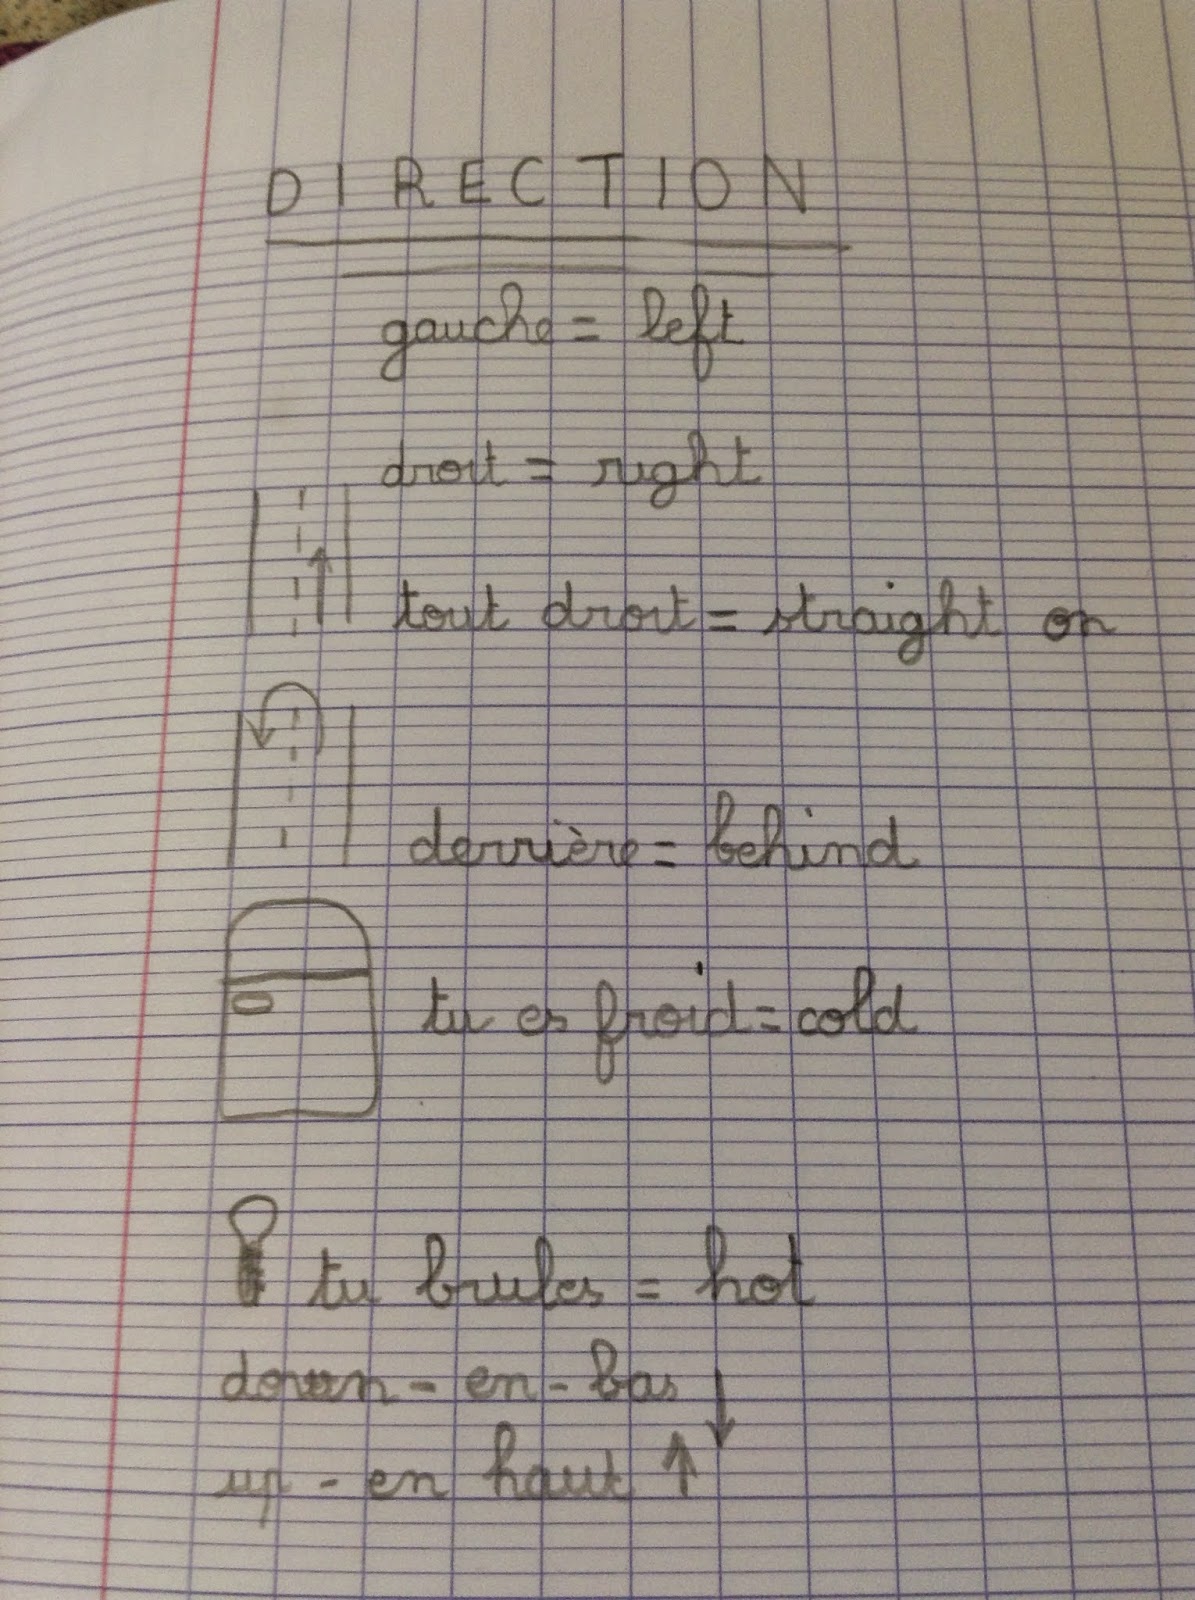 DIRECTION
gauche = left
droit = right
tout droit = straight on
derrière = behind
tu es froid = cold
tu brules = hot
down - en - bas
up - en haut